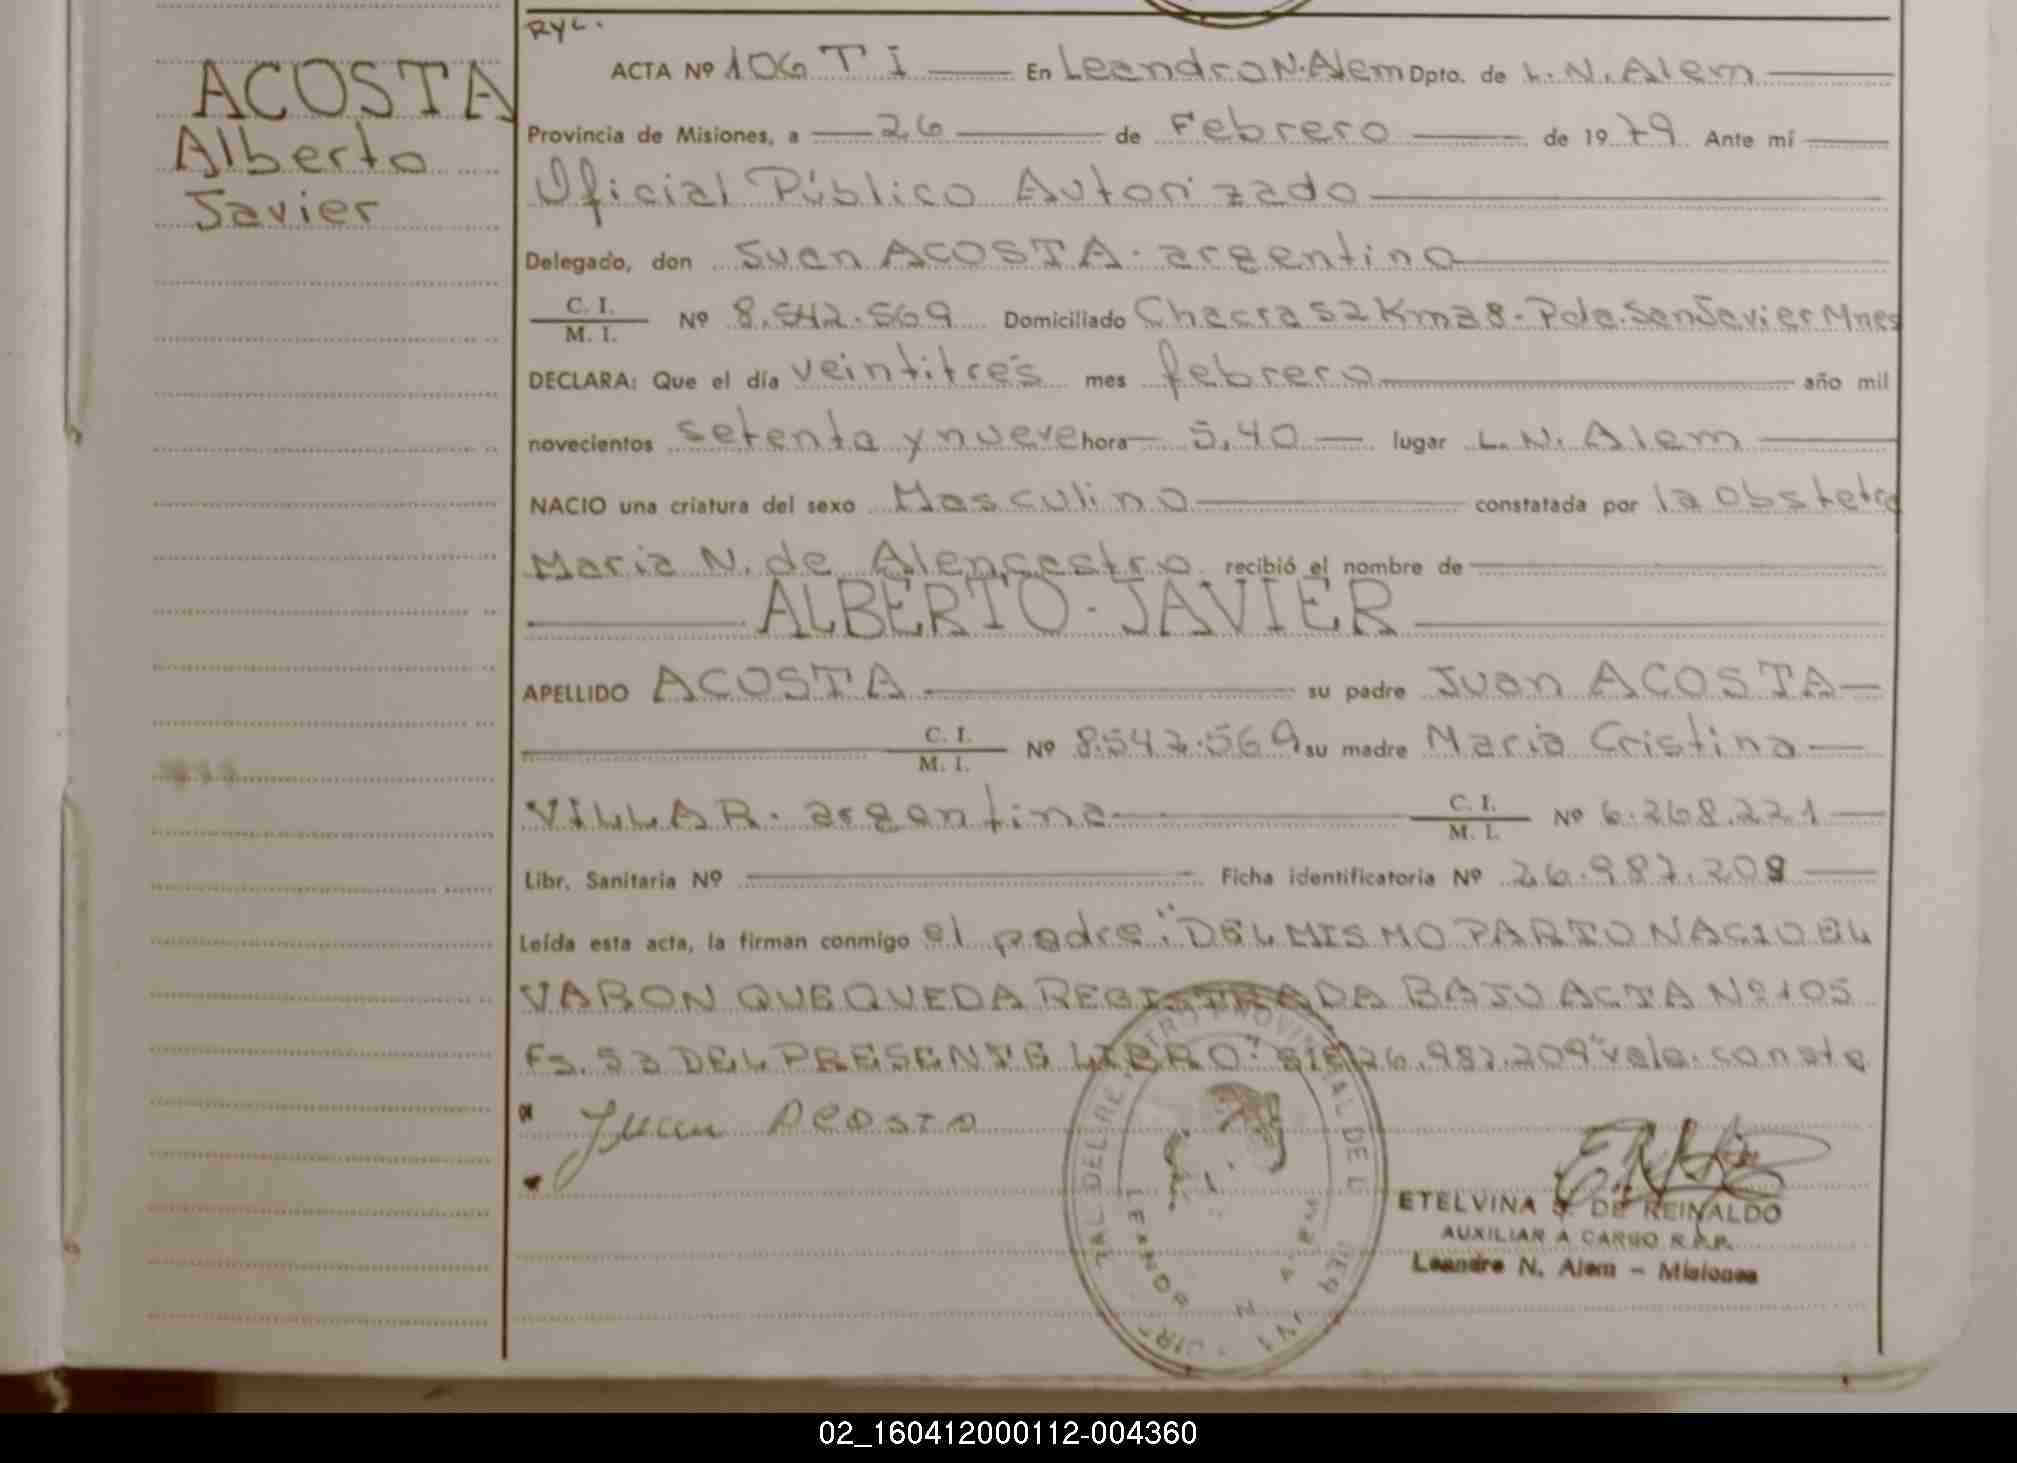 RYL.
ACOSTA
Alberto
Javier
ACTA Nº 106 T I En Leandro N. Alem Dpto. de L. N. Alem
Provincia de Misiones, a 26 de Febrero de 1979. Ante mí
Oficial Público Autorizado
Delegado, don Juan ACOSTA. argentino
C. I.
M. I. Nº 8.542.569 Domiciliado Chacra 52 Km 28 - Pda. San Javier Mnes
DECLARA: Que el día veintitres mes febrero año mil
novecientos setenta y nueve hora 5,40 lugar L. N. Alem
NACIO una criatura del sexo Masculino constatada por la obstetra
Maria N. de Alencastro recibió el nombre de
ALBERTO - JAVIER
APELLIDO ACOSTA su padre Juan ACOSTA
C. I.
M. I. Nº 8.542.569 su madre Maria Cristina
VILLAR. argentina C. I.
M. I. Nº 6.268.221
Libr. Sanitaria Nº Ficha identificatoria Nº 26.987.209
Leída esta acta, la firman conmigo el padre: "DEL MISMO PARTO NACIO EL
VARON QUE QUEDA REGISTRADA BAJO ACTA Nº 105
Fs. 53 DEL PRESENTE LIBRO" 26.987.209 "vale. conste
Juan Acosta
LEANDRO N. ALEM
ETELVINA DE REINALDO
AUXILIAR A CARGO R.P.P.
Leandro N. Alem - Misiones
02_160412000112-004360